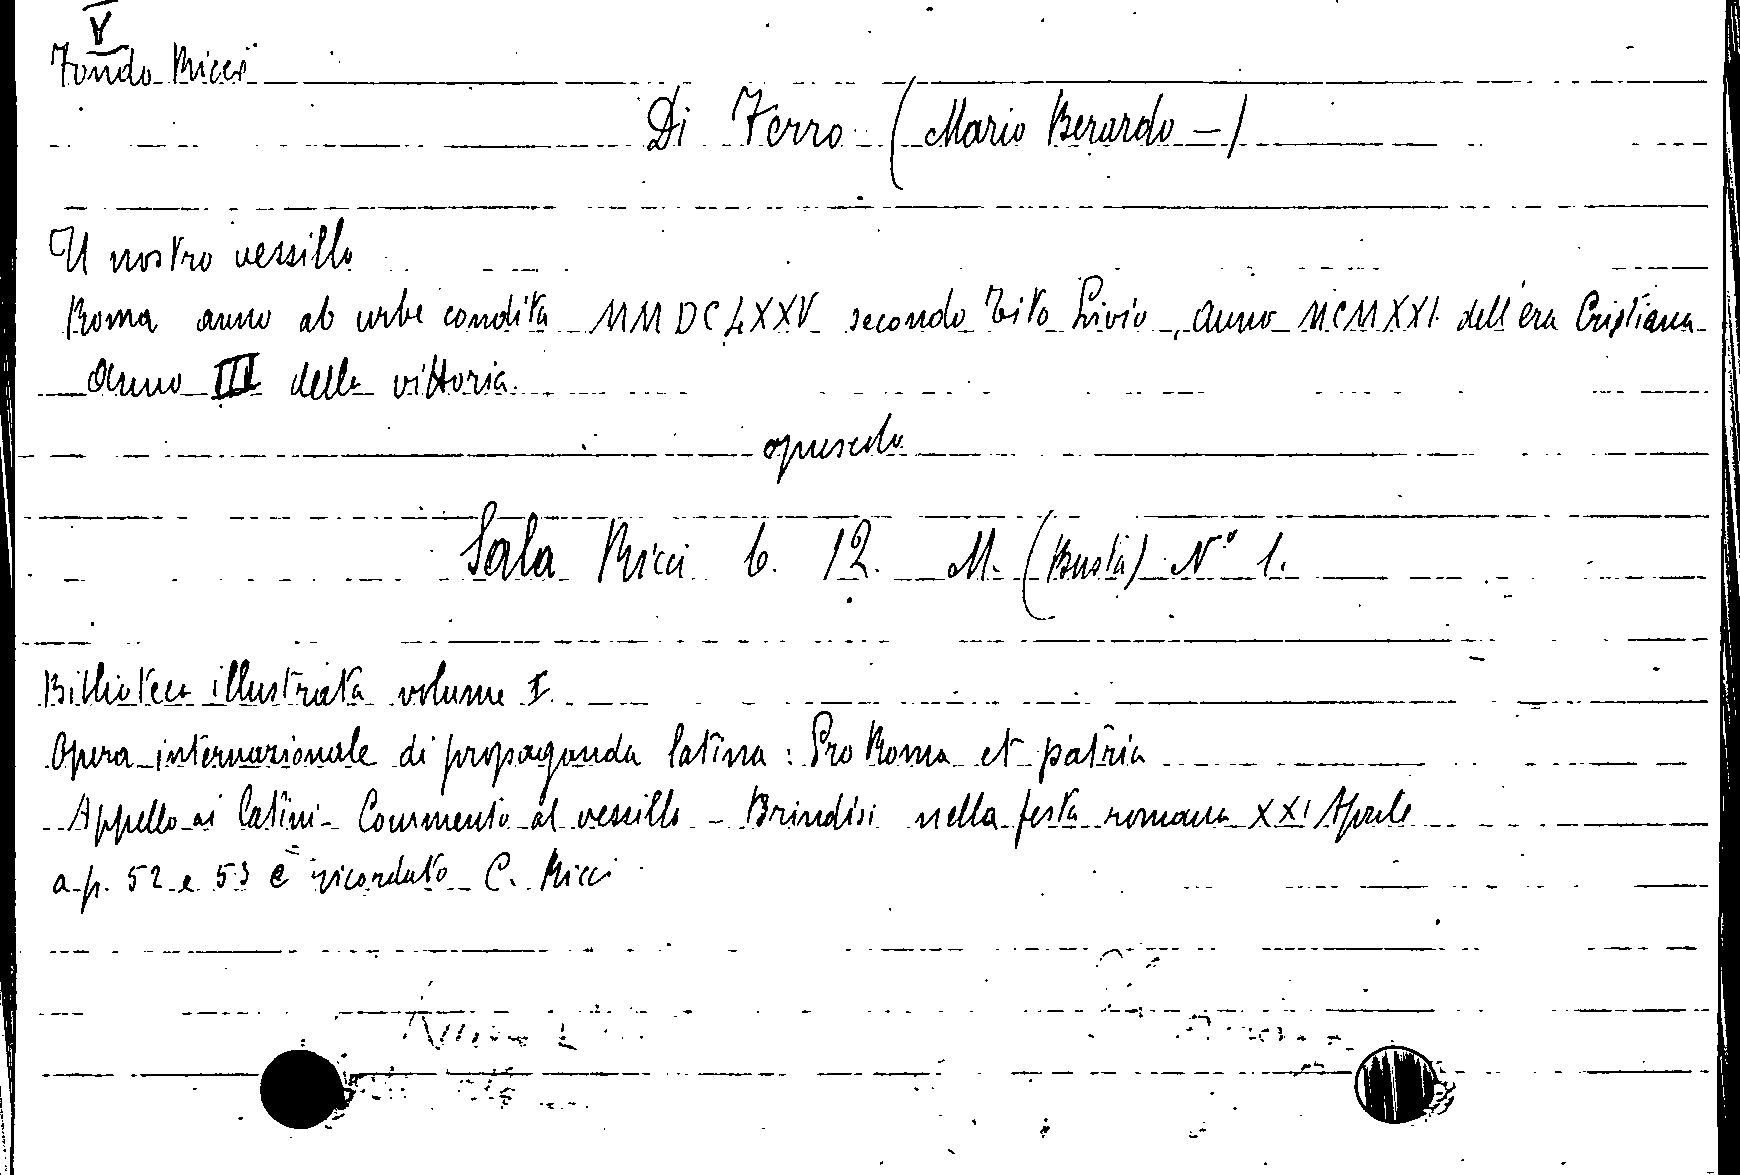 V
Fondo Ricci
Di Ferro (Mario Berardo -)
Il nostro vessillo
Roma anno ab urbe condita MMDCLXXV secondo Tito Livio, anno MCMXXI dell'era Cristiana
Anno III della vittoria.
opuscolo
Sala Ricci b. 12. M. (Busta) N° 1.
Biblioteca illustrata volume I
Opera internazionale di propaganda latina: Pro Roma et patria
Appello ai latini - Commento al vessillo - Brindisi nella festa romana XXI Aprile
a p. 52 e 53 è ricordato C. Ricci